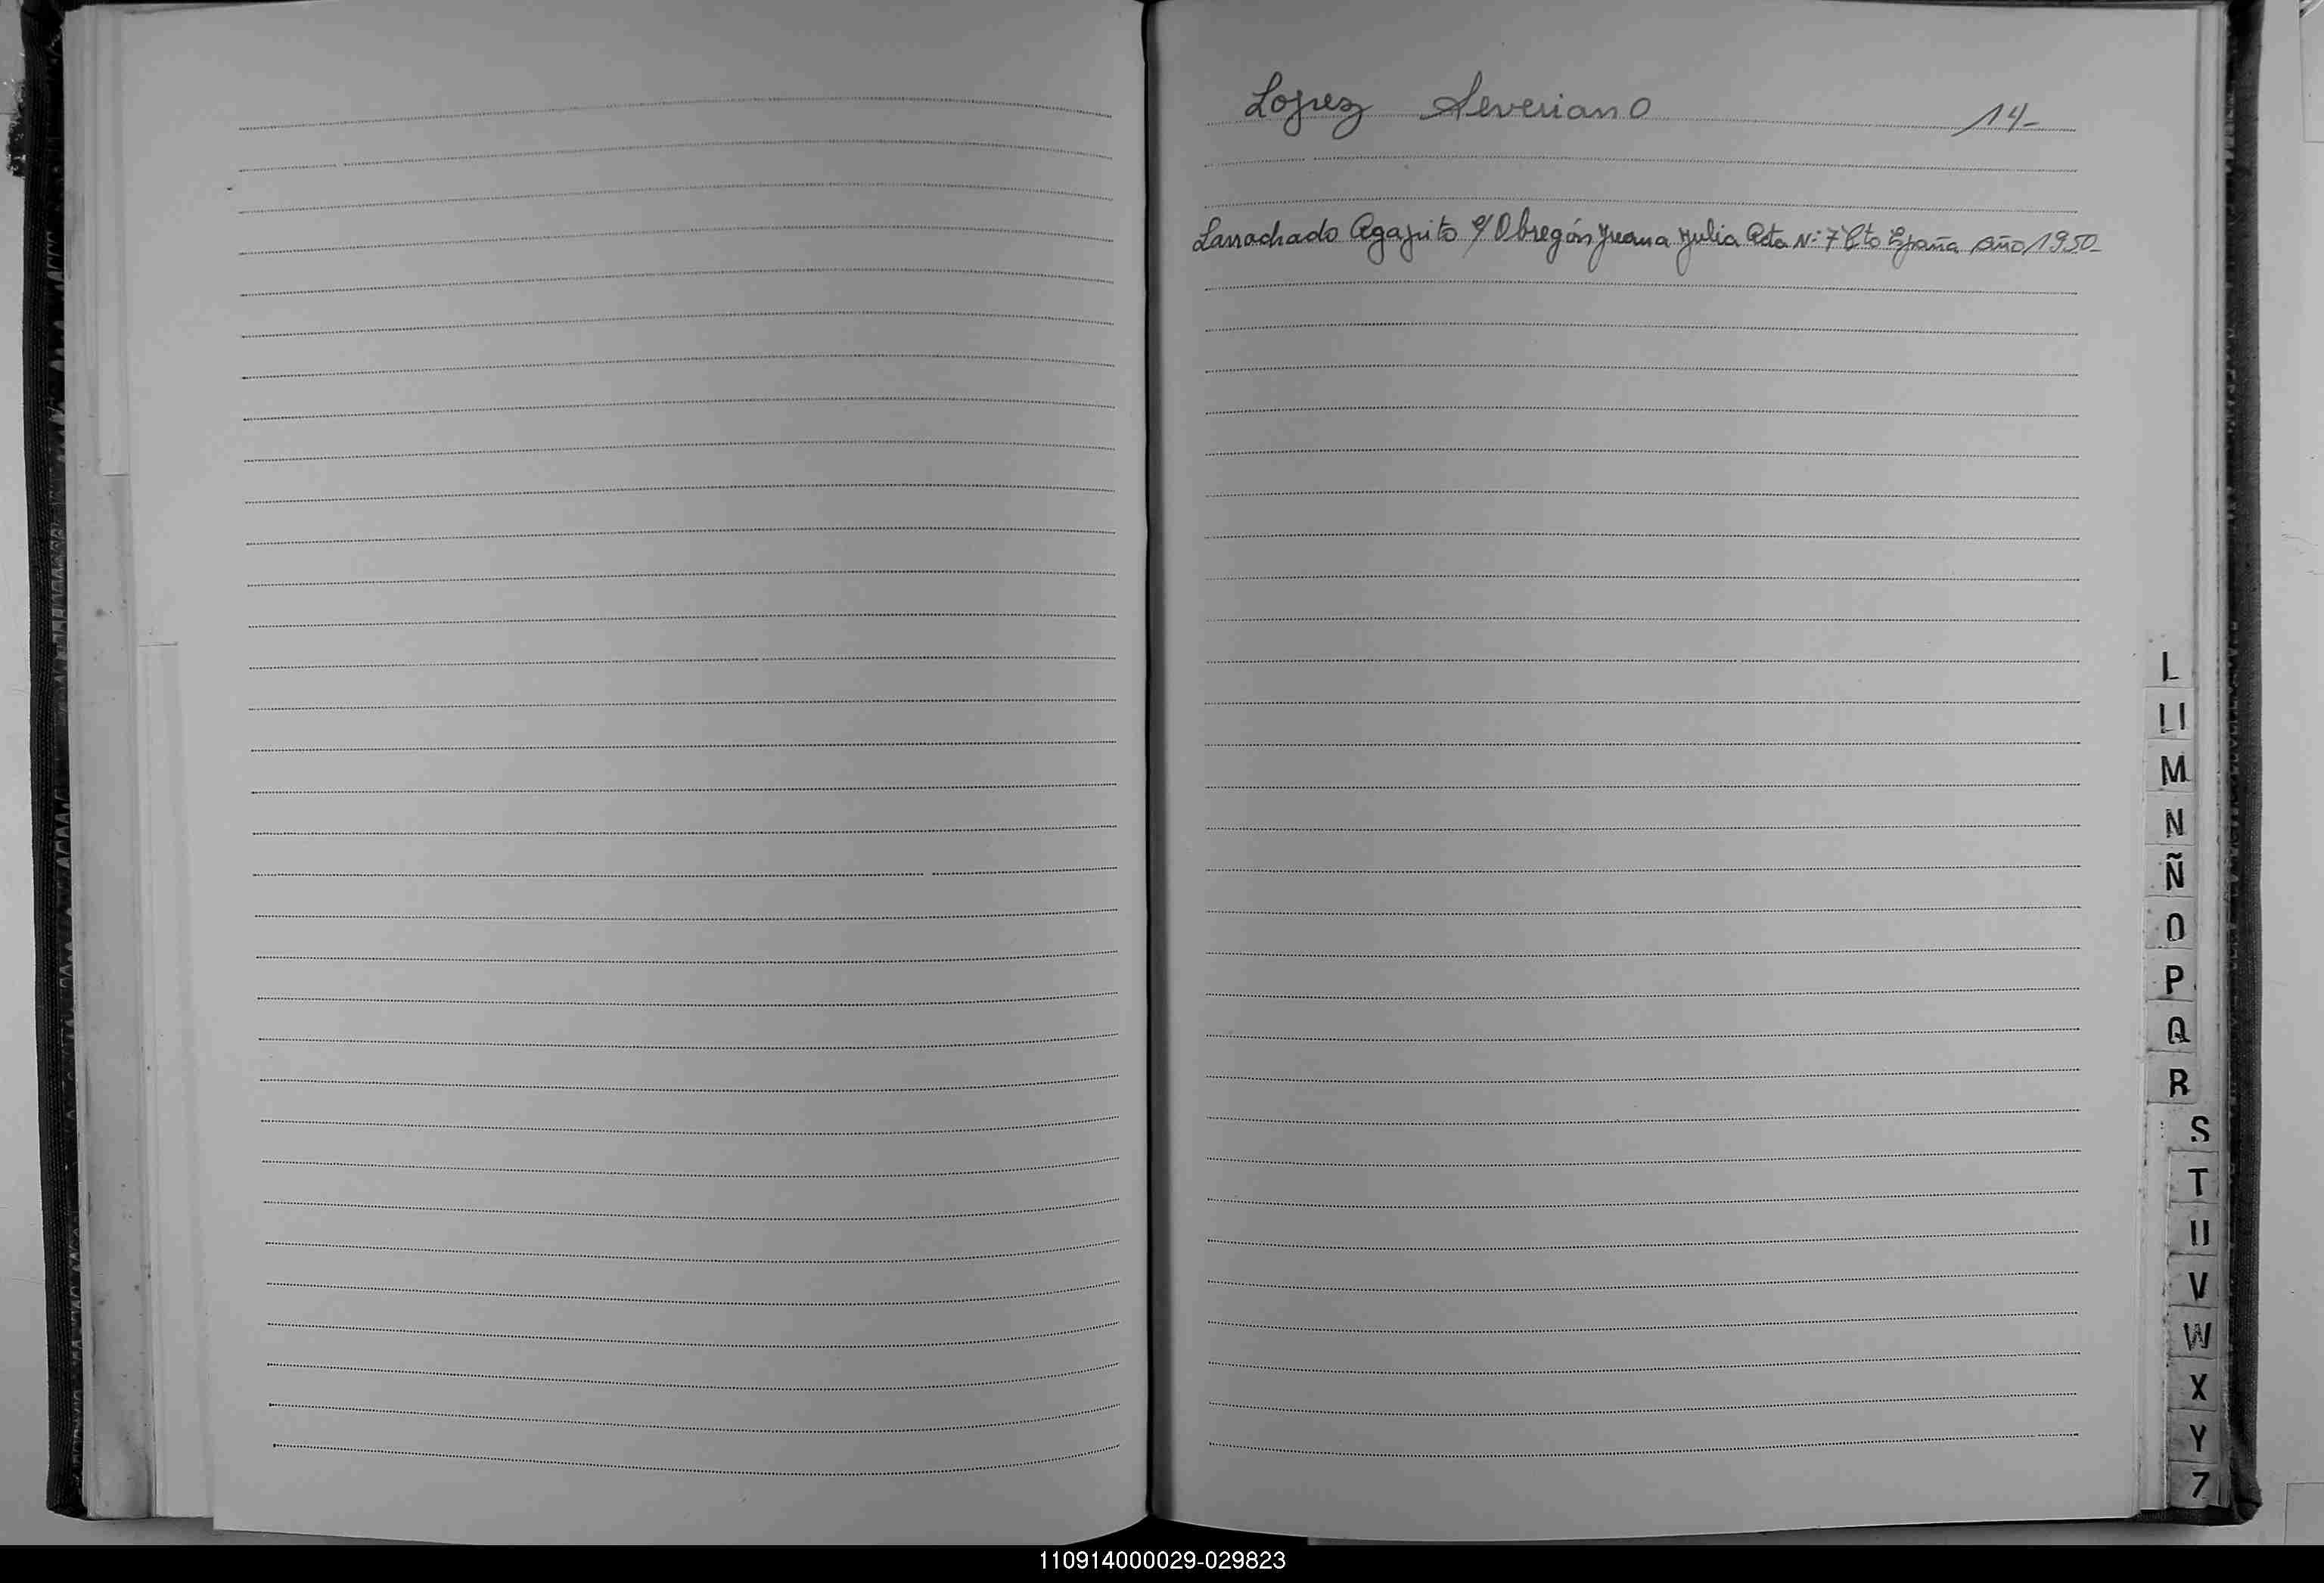 Lopez Severiano 14-
Larrachado Agapito c/ Obregón Juana Julia Acta N: 7 Cto España Año 1950-
L
Ll
M
N
Ñ
O
P
Q
R
S
T
U
V
W
X
Y
Z
110914000029-029823